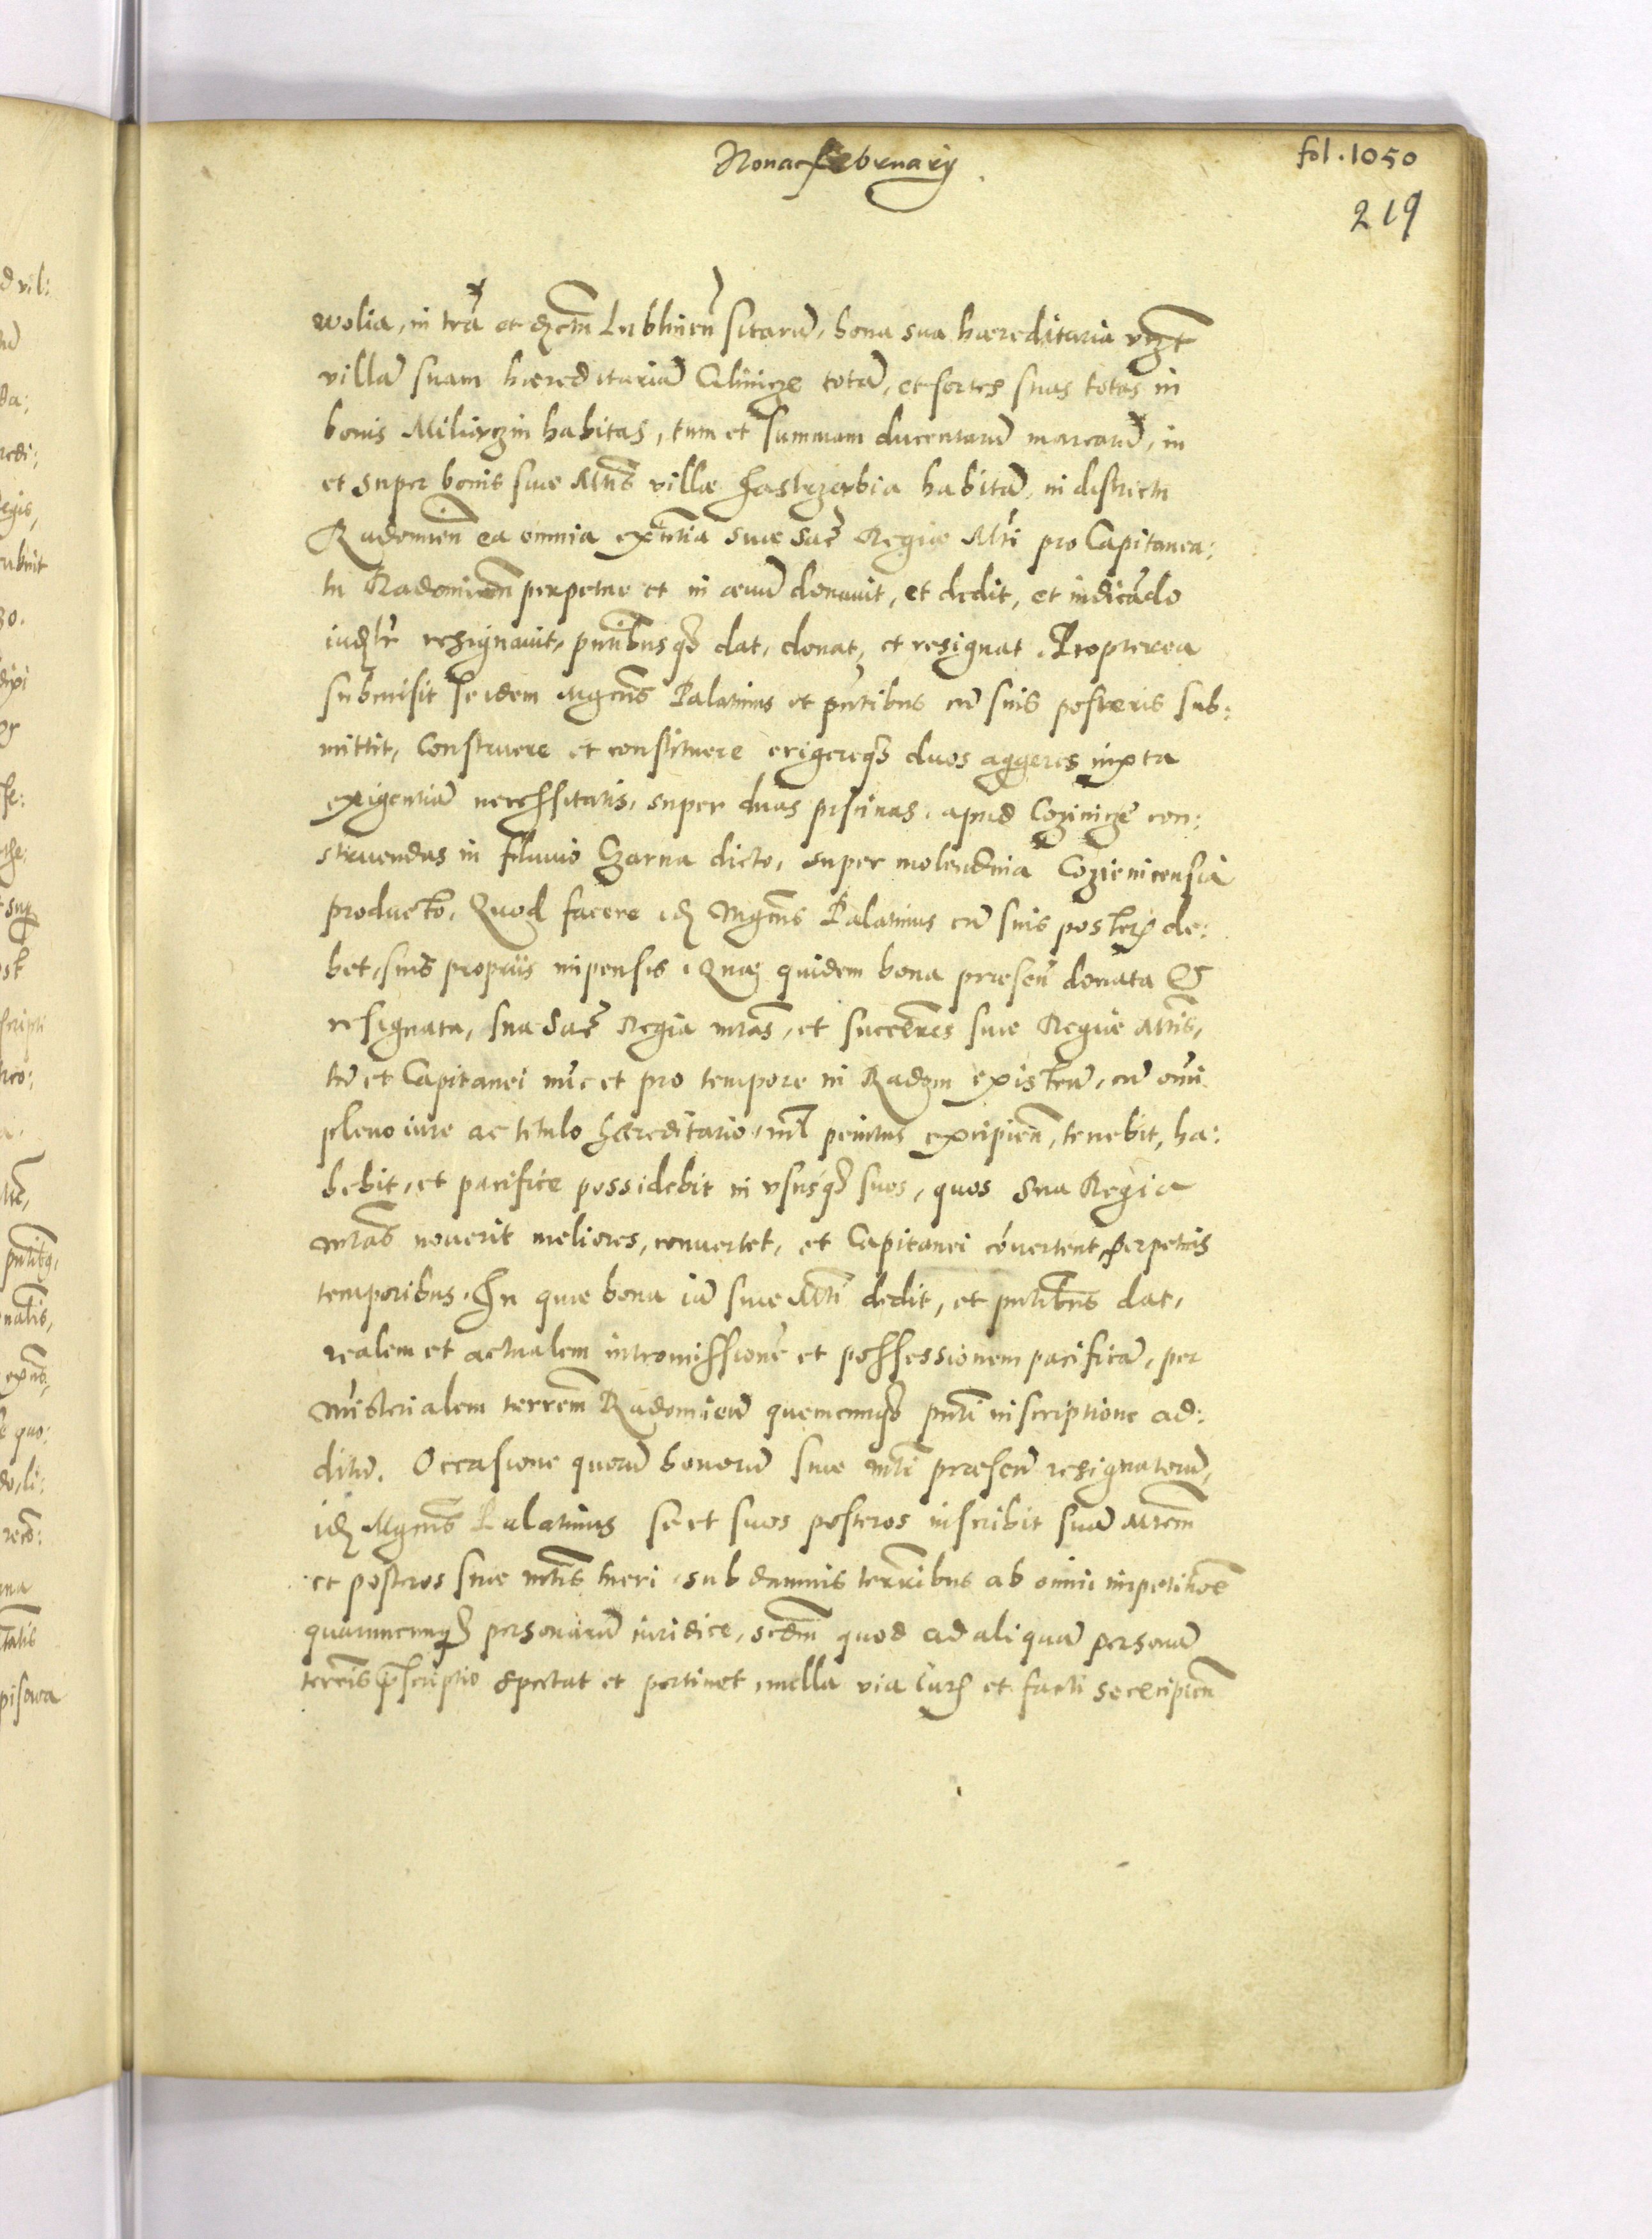 Nona february
fol. 1050
219
wolia, in tra et dctm Lublineñ sitarũ, bona sua hæreditaria vzt
villã suam hæreditariã Glinicze totã, et sortes suas totas in
bonis Miliorzin habitas, tum et summam ducentarũ marcarũ, in
et super bonis suæ Mtis villæ Jastrzebia habitã, in districtu
Radomień ea omnia exñtia suæ Sac Regiæ Mti pro Capitanea:
tu Radomień perpetue et in ævũ donavit, et dedit, et indicãdo
iudlr resignavit, pntibusq3 dat, donat, et resignat. Propterea
submisit se idem Mgcus Palatinus et pntibus cũ suis posteris sub:
mittit, Construere et constituere erigereq3 duos aggeres iuxta
exigentiã necessitatis, super duas piscinas, apud Cozinicze con:
struendas in fluvio Czarna dicto, super molendina Cozienicensia
producto, Quod facere id Mgcus Palatinus cũ suis posteris de:
bet, suis propriis inpensis. Quæ quidem bona præseñ donata &
resignata, sua Sac Regia mtas, et succẽres suæ Regiæ Mtis,
tũ et Capitanei nũc et pro tempore in Radom existeñ, cũ omi
pleno iure ac titulo hæreditario, nil penitus excipieñ, tenebit, ha:
bebit, et pacifice possidebit in ususq3 suos, quos Sua Regia
mtas noverit meliores, convertet, et Capitanei cõvertent perpetuis
temporibus. In quæ bona iã suæ Mti dedit, et pntibus dat,
realem et actualem intromissionẽ et possessionem pacificã, per
Misterialem terrem Radomieñ quemcunq3 pnti inscriptione ad:
ditũ. Occasione quorũ bonorũ suæ mti præseñ resignatorũ,
id Mgcus Palatinus se et suos posteros inscribit suã Mtem
et posteros suæ mtis tueri, sub damnis terribus ab omni inpetitioẽ
quarumcunq3 personarũ iuridice, scdm quod ad aliquã personã
terris pscriptio spectat et pertinet, nulla via iuris et facti se excipień